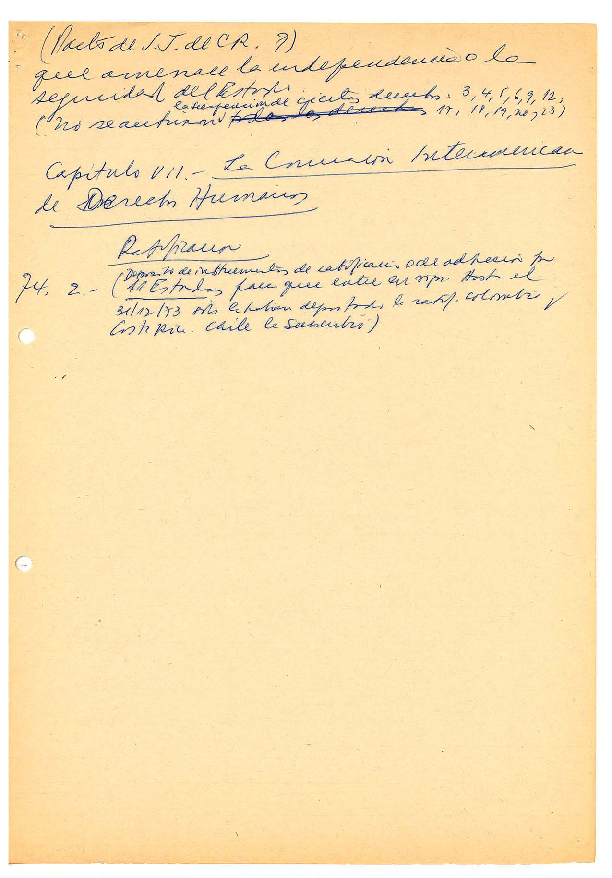 (Pacto de S.J. de C.R. 9)
que amenace la independencia o la
seguridad del Estado
la suspensión de ciertos derechos: 3, 4, 5, 6, 9, 12,
(No se autoriza todos los derechos 17, 18, 19, 20, 23)
Capítulo VII.- La Comisión Interamericana
de Derechos Humanos
Ratificación
74. 2.- (Depósito de instrumentos de ratificación o de adhesión por
11 Estados para que entre en vigor. Hasta el
31/12/73 sólo la habían depositado la ratif. Colombia y
Costa Rica. Chile la suscribió)